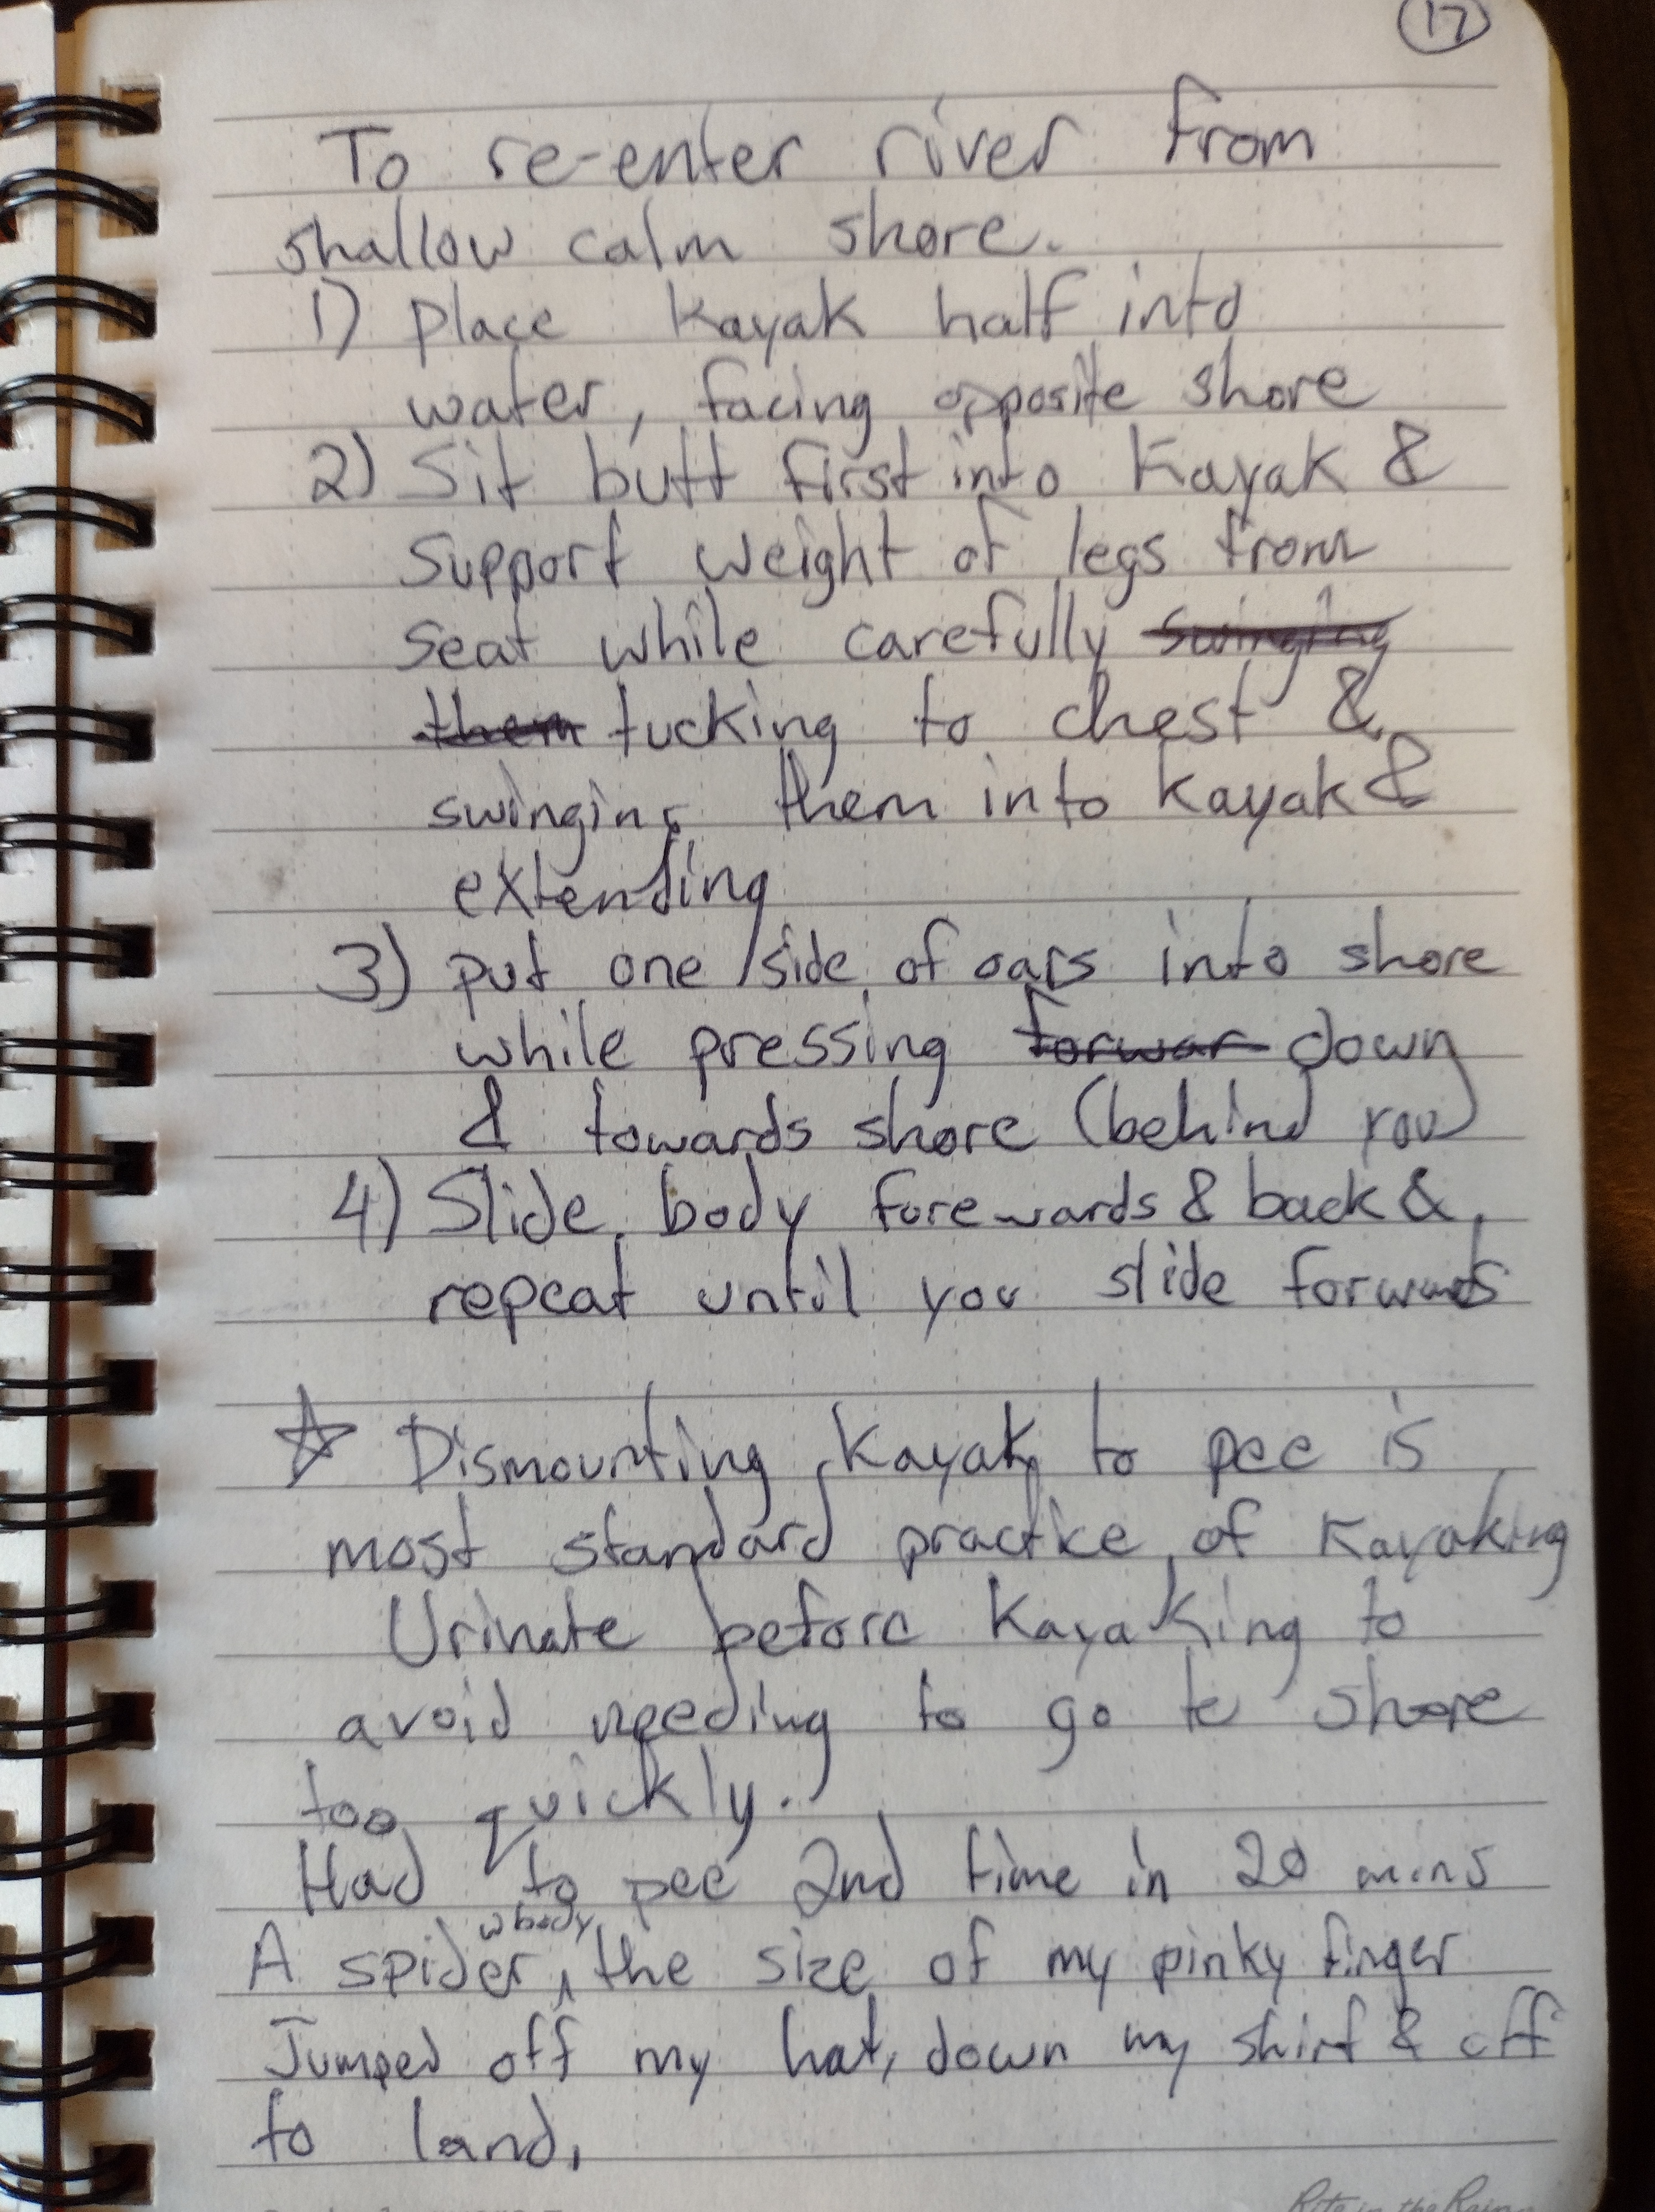 17
To re-enter river from
shallow calm shore.
1) place kayak half into
water, facing opposite shore
2) Sit butt first into Kayak &
support weight of legs from
seat while carefully swinging
them tucking to chest &
swinging them into kayak &
extending
3) put one side of oars into shore
while pressing forwar down
& towards shore (behind you)
4) Slide body forewards & back &
repeat until you slide forwards
☆ Dismounting Kayak to pee is
most standard practice of Kayaking
Urinate before Kayaking to
avoid needing to go to shore
too quickly.
Had to pee 2nd time in 20 mins
w body
A spider ^ the size of my pinky finger
Jumped off my hat, down my shirt & off
to land.
Rite in the Rain